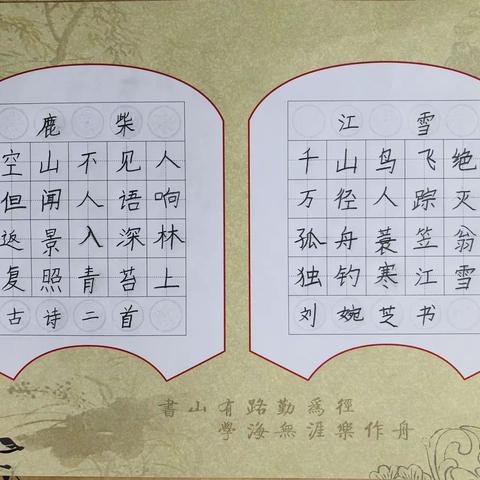 鹿柴
空山不见人
但闻人语响
返景入深林
复照青苔上
古诗二首
江雪
千山鸟飞绝
万径人踪灭
孤舟蓑笠翁
独钓寒江雪
刘婉芝书
書山有路勤爲徑
學海無涯樂作舟